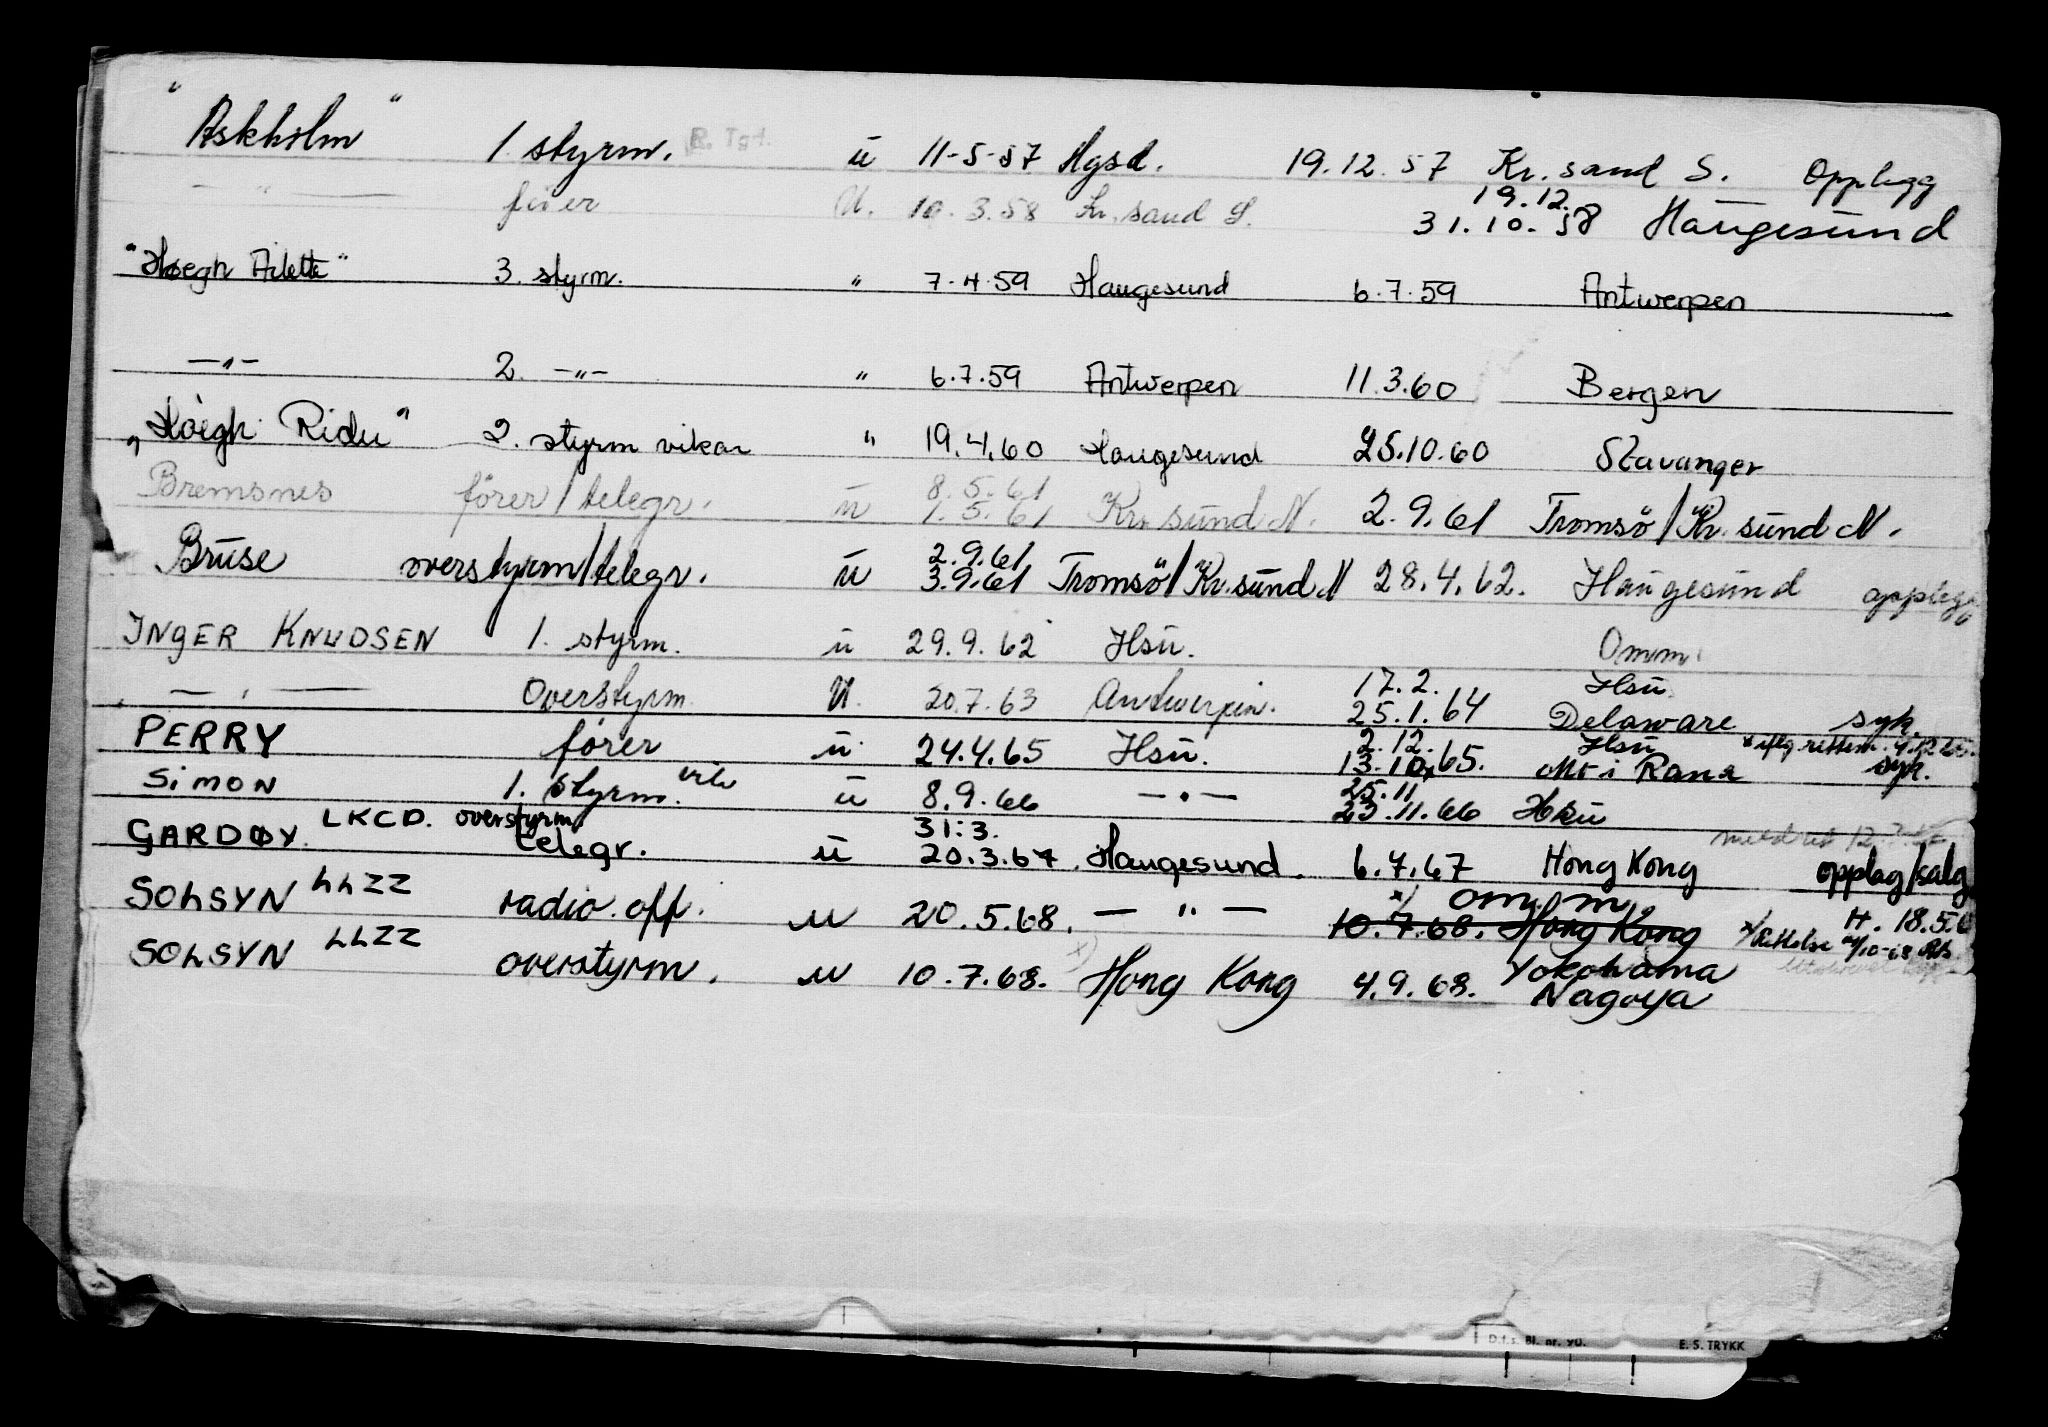 "Askholm" 1. styrm. R. Tgt. ü 11-5-57 Hgsd. 19.12.57 Kr.sand S. Opplegg
— " — fører ü. 10.3.58 Kr.sand S. 19.12. 31.10.58 Haugesund
"Høegh Ailette" 3. styrm. " 7.4.59 Haugesund 6.7.59 Antwerpen
—"— 2. —"— " 6.7.59 Antwerpen 11.3.60 Bergen
"Höegh Rider" 2. styrm vikar " 19.4.60 Haugesund 25.10.60 Stavanger
Bremsnes förer/telegr. ü 8.5.61 1.5.61 Kr.sünd N. 2.9.61 Tromsö/Kr.sünd N.
Brüse overstyrm/telegr. ü 2.9.61 3.9.61 Tromsö/Kr.sünd N 28.4.62. Haugesünd opplegg
INGER KNUDSEN 1. styrm. ü 29.9.62 Hsü. Omm.
— " — Overstyrm. ü. 20.7.63 Antwerpen. 17.2. 25.1.64 Hsü. Delaware syk.
PERRY förer ü. 24.4.65 Hsü. 2.12. 13.10.65. Hsü Mo i Rana x iflg. rettem. 4.12.65. syk.
SIMON 1. styrm. vik ü 8.9.66 — " — 25.11 23.11.66 Hsü
GARDØY LKCD. overstyrm telegr. ü 31.3. 20.3.67. Haugesund. 6.7.67 Hong Kong meldret 12.7. opplag/salg
SOLSYN LLZZ radio.off. ü 20.5.68. — " — x) omm. 10.7.68. Hong Kong H. 18.5.6 x/Rettelse 21/10-68
SOLSYN LLZZ overstyrm. ü 10.7.68. x) Hong Kong 4.9.68. Yokohama Nagoya
D.f.s. Bl. nr. 90. E. S. TRYKK